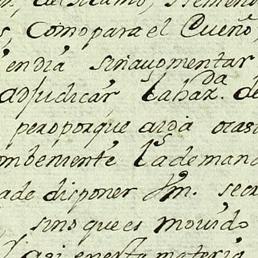 , Como para el Cueño,
endiá sin augmentar
adjudicár la haz.da de
pero porque aida ocas
mbeniente las demand
ade disponer Jm. secr
sino que es movido
asi en esta materia